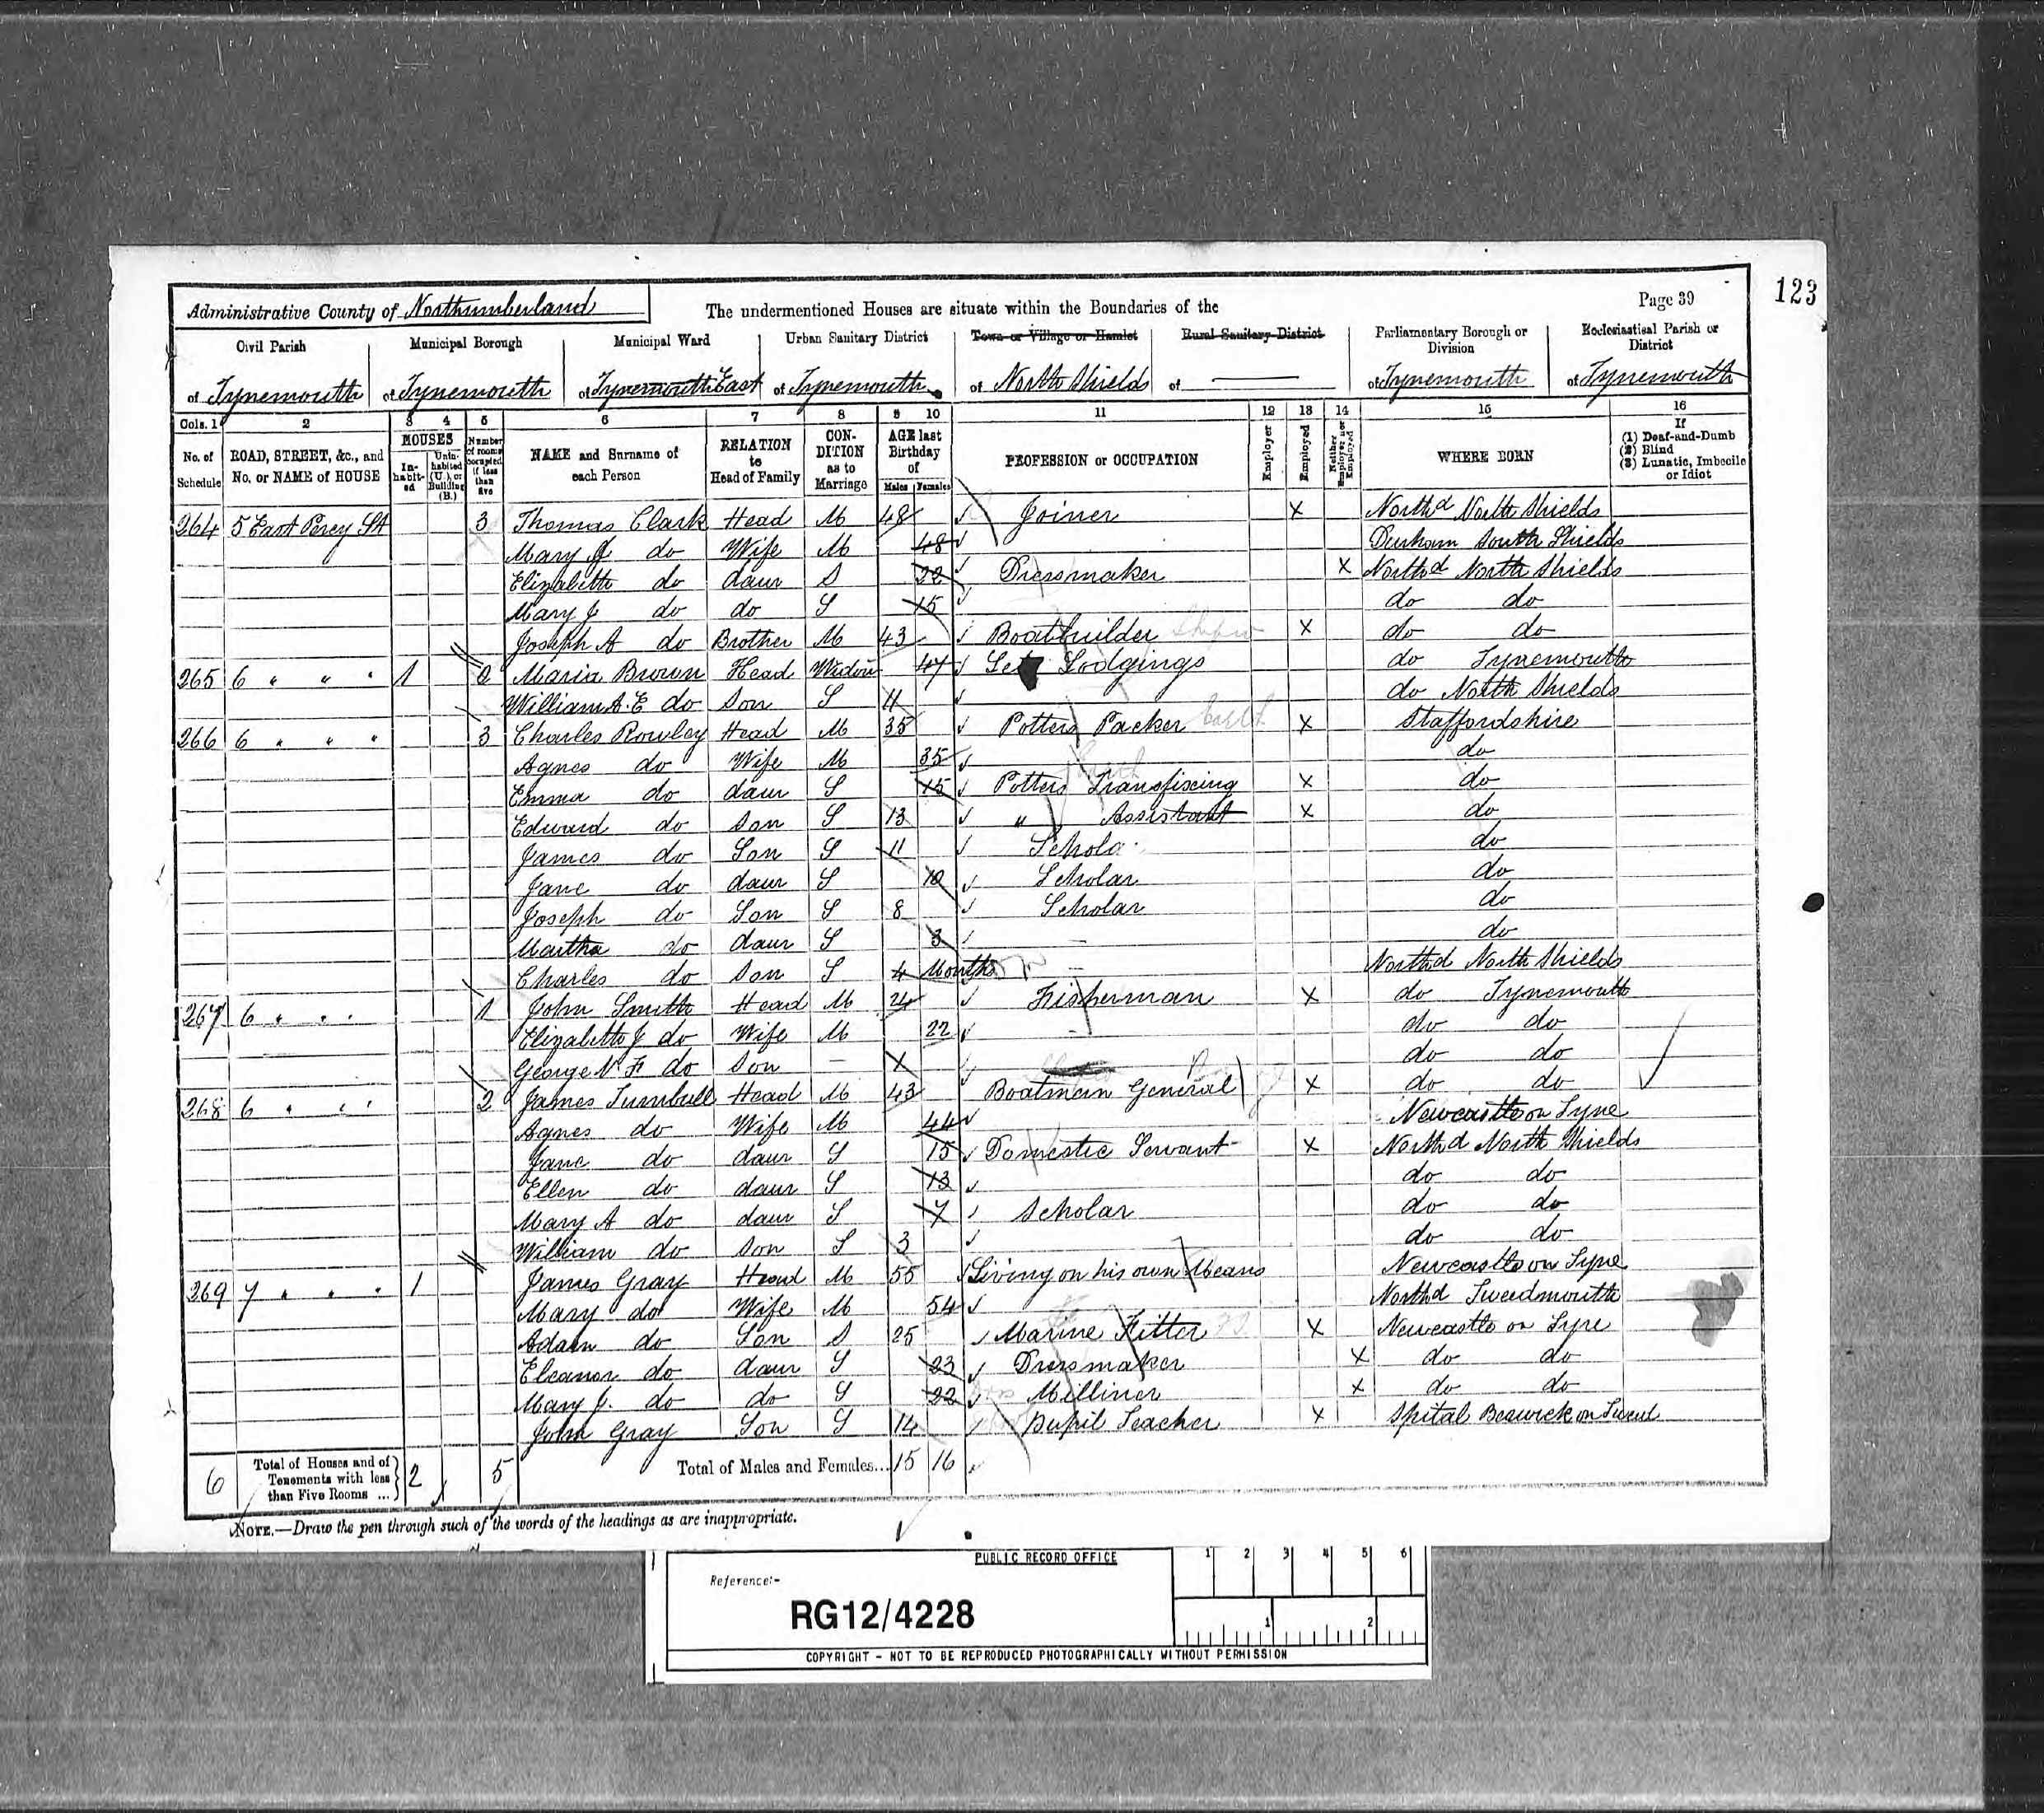 123
Administrative County of Northumberland
The undermentioned Houses are situate within the Boundaries of the
Page 39
Civil Parish
Municipal Borough
Municipal Ward
Urban Sanitary District
Town or Village or Hamlet
Rural Sanitary District
Parliamentary Borough or Division
Ecclesiastical Parish or District
of Tynemouth of Tynemouth of Tynemouth East of Tynemouth of North Shields of — of Tynemouth of Tynemouth
Cols. 1 2 3 4 5 6 7 8 9 10 11 12 13 14 15 16
No. of Schedule
ROAD, STREET, &c., and No. or NAME of HOUSE
HOUSES
In-habit-ed
Unin-habited (U.), or Building (B.)
Number of rooms occupied if less than five
NAME and Surname of each Person
RELATION to Head of Family
CON-DITION as to Marriage
AGE last Birthday of
Males Females
PROFESSION or OCCUPATION
Employer
Employed
Neither Employer nor Employed
WHERE BORN
If
(1) Deaf-and-Dumb
(2) Blind
(3) Lunatic, Imbecile or Idiot
264 5 East Percy St 3 Thomas Clark Head M 48 Joiner X North'd North Shields
Mary J do Wife M 48 Durham South Shields
Elizabeth do daur S 22 Dressmaker X North'd North Shields
Mary J do do S 15 do do
Joseph A do Brother M 43 Boatbuilder X do do
265 6 " " " 1 2 Maria Brown Head Widow 47 Let Lodgings do Tynemouth
William A. E do Son S 11 do North Shields
266 6 " " " 3 Charles Rowley Head M 35 Potters Packer X Staffordshire
Agnes do Wife M 35 do
Emma do daur S 15 Potters Transfixing X do
Edward do Son S 13 " Assistant X do
James do Son S 11 Schola do
Jane do daur S 10 Scholar do
Joseph do Son S 8 Scholar do
Martha do daur S 3 — do
Charles do Son S 4 Months — North'd North Shields
267 6 " " " 1 John Smith Head M 24 Fisherman X do Tynemouth
Elizabeth J do Wife M 22 - do do
George N F do Son — X do do
268 6 " " " 2 James Turnbull Head M 43 Boatman General X do do
Agnes do Wife M 44 Newcastle on Tyne
Jane do daur S 15 Domestic Servant X North'd North Shields
Ellen do daur S 13 do do
Mary A do daur S 7 Scholar do do
William do Son S 3 do do
269 7 " " " 1 James Gray Head M 55 Living on his own Means Newcastle on Tyne
Mary do Wife M 54 North'd Tweedmouth
Adam do Son S 25 Marine Fitter X Newcastle on Tyne
Eleanor do daur S 23 Dressmaker X do do
Mary J. do do S 22 Milliner X do do
John Gray Son S 14 Pupil Teacher X Spital Berwick on Tweed
6 Total of Houses and of Tenements with less than Five Rooms ... 2 5 Total of Males and Females... 15 16
NOTE.—Draw the pen through such of the words of the headings as are inappropriate.
PUBLIC RECORD OFFICE
1 2 3 4 5 6
Reference:-
RG12/4228
1 2
COPYRIGHT - NOT TO BE REPRODUCED PHOTOGRAPHICALLY WITHOUT PERMISSION